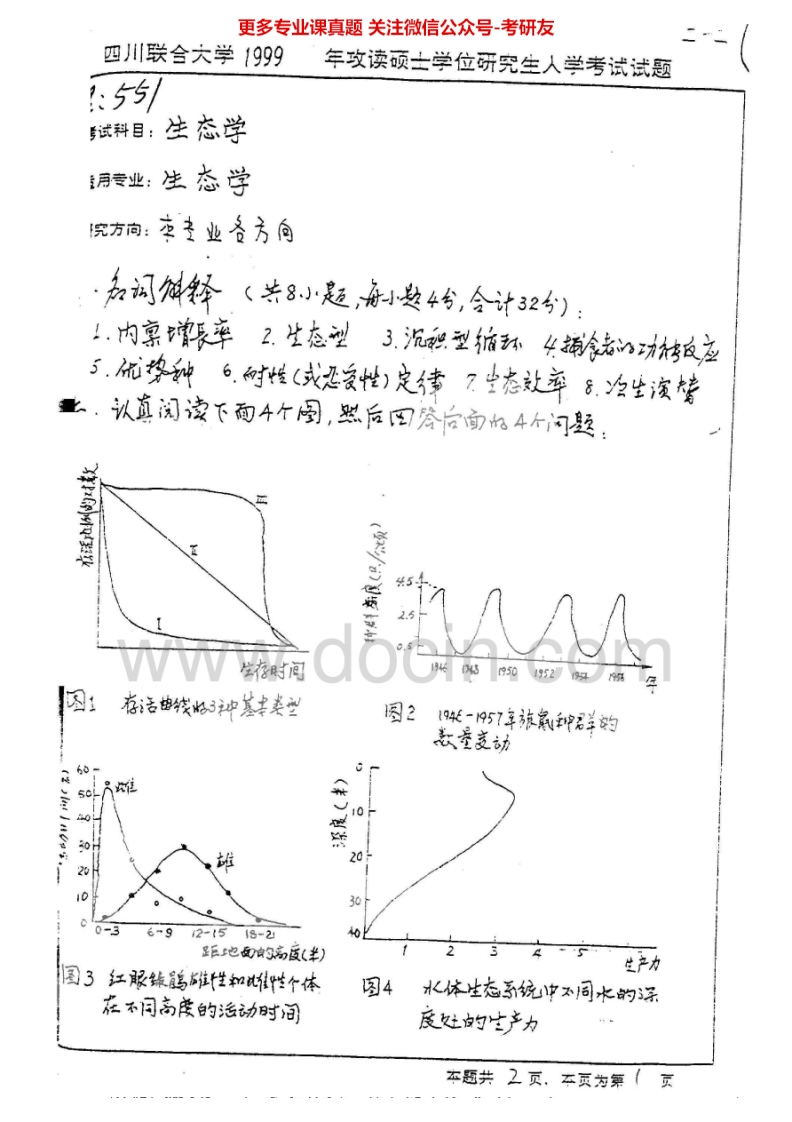 更多专业课真题 关注微信公众号-考研友
四川联合大学 1999 年攻读硕士学位研究生入学考试试题
:551
试科目: 生态学
用专业: 生态学
究方向: 本专业各方向
名词解释 (共8小题,每小题4分,合计32分):
1.内禀增长率 2.生态型 3.沉积型循环 4.捕食者的功能反应
5.优势种 6.耐性(或忍受性)定律 7.生态效率 8.次生演替
二. 认真阅读下面4个图,然后回答后面的4个问题:
存活比例的对数
III
II
I
生存时间
图1 存活曲线的3种基本类型
种群密度(只/公顷)
4.5
2.5
0.5
1946 1948 1950 1952 1954 1956 年
图2 1946-1957年旅鼠种群的
数量变动
60
50
40
30
20
10
0
雌
雄
0-3 6-9 12-15 18-21
距地面的高度(米)
图3 红眼绿鹃雄性和雌性个体
在不同高度的活动时间
深度(米)
0
10
20
30
40
1 2 3 4 5 生产力
图4 水体生态系统中不同水的深
度处的生产力
本题共 2 页, 本页为第 1 页
www.docin.com